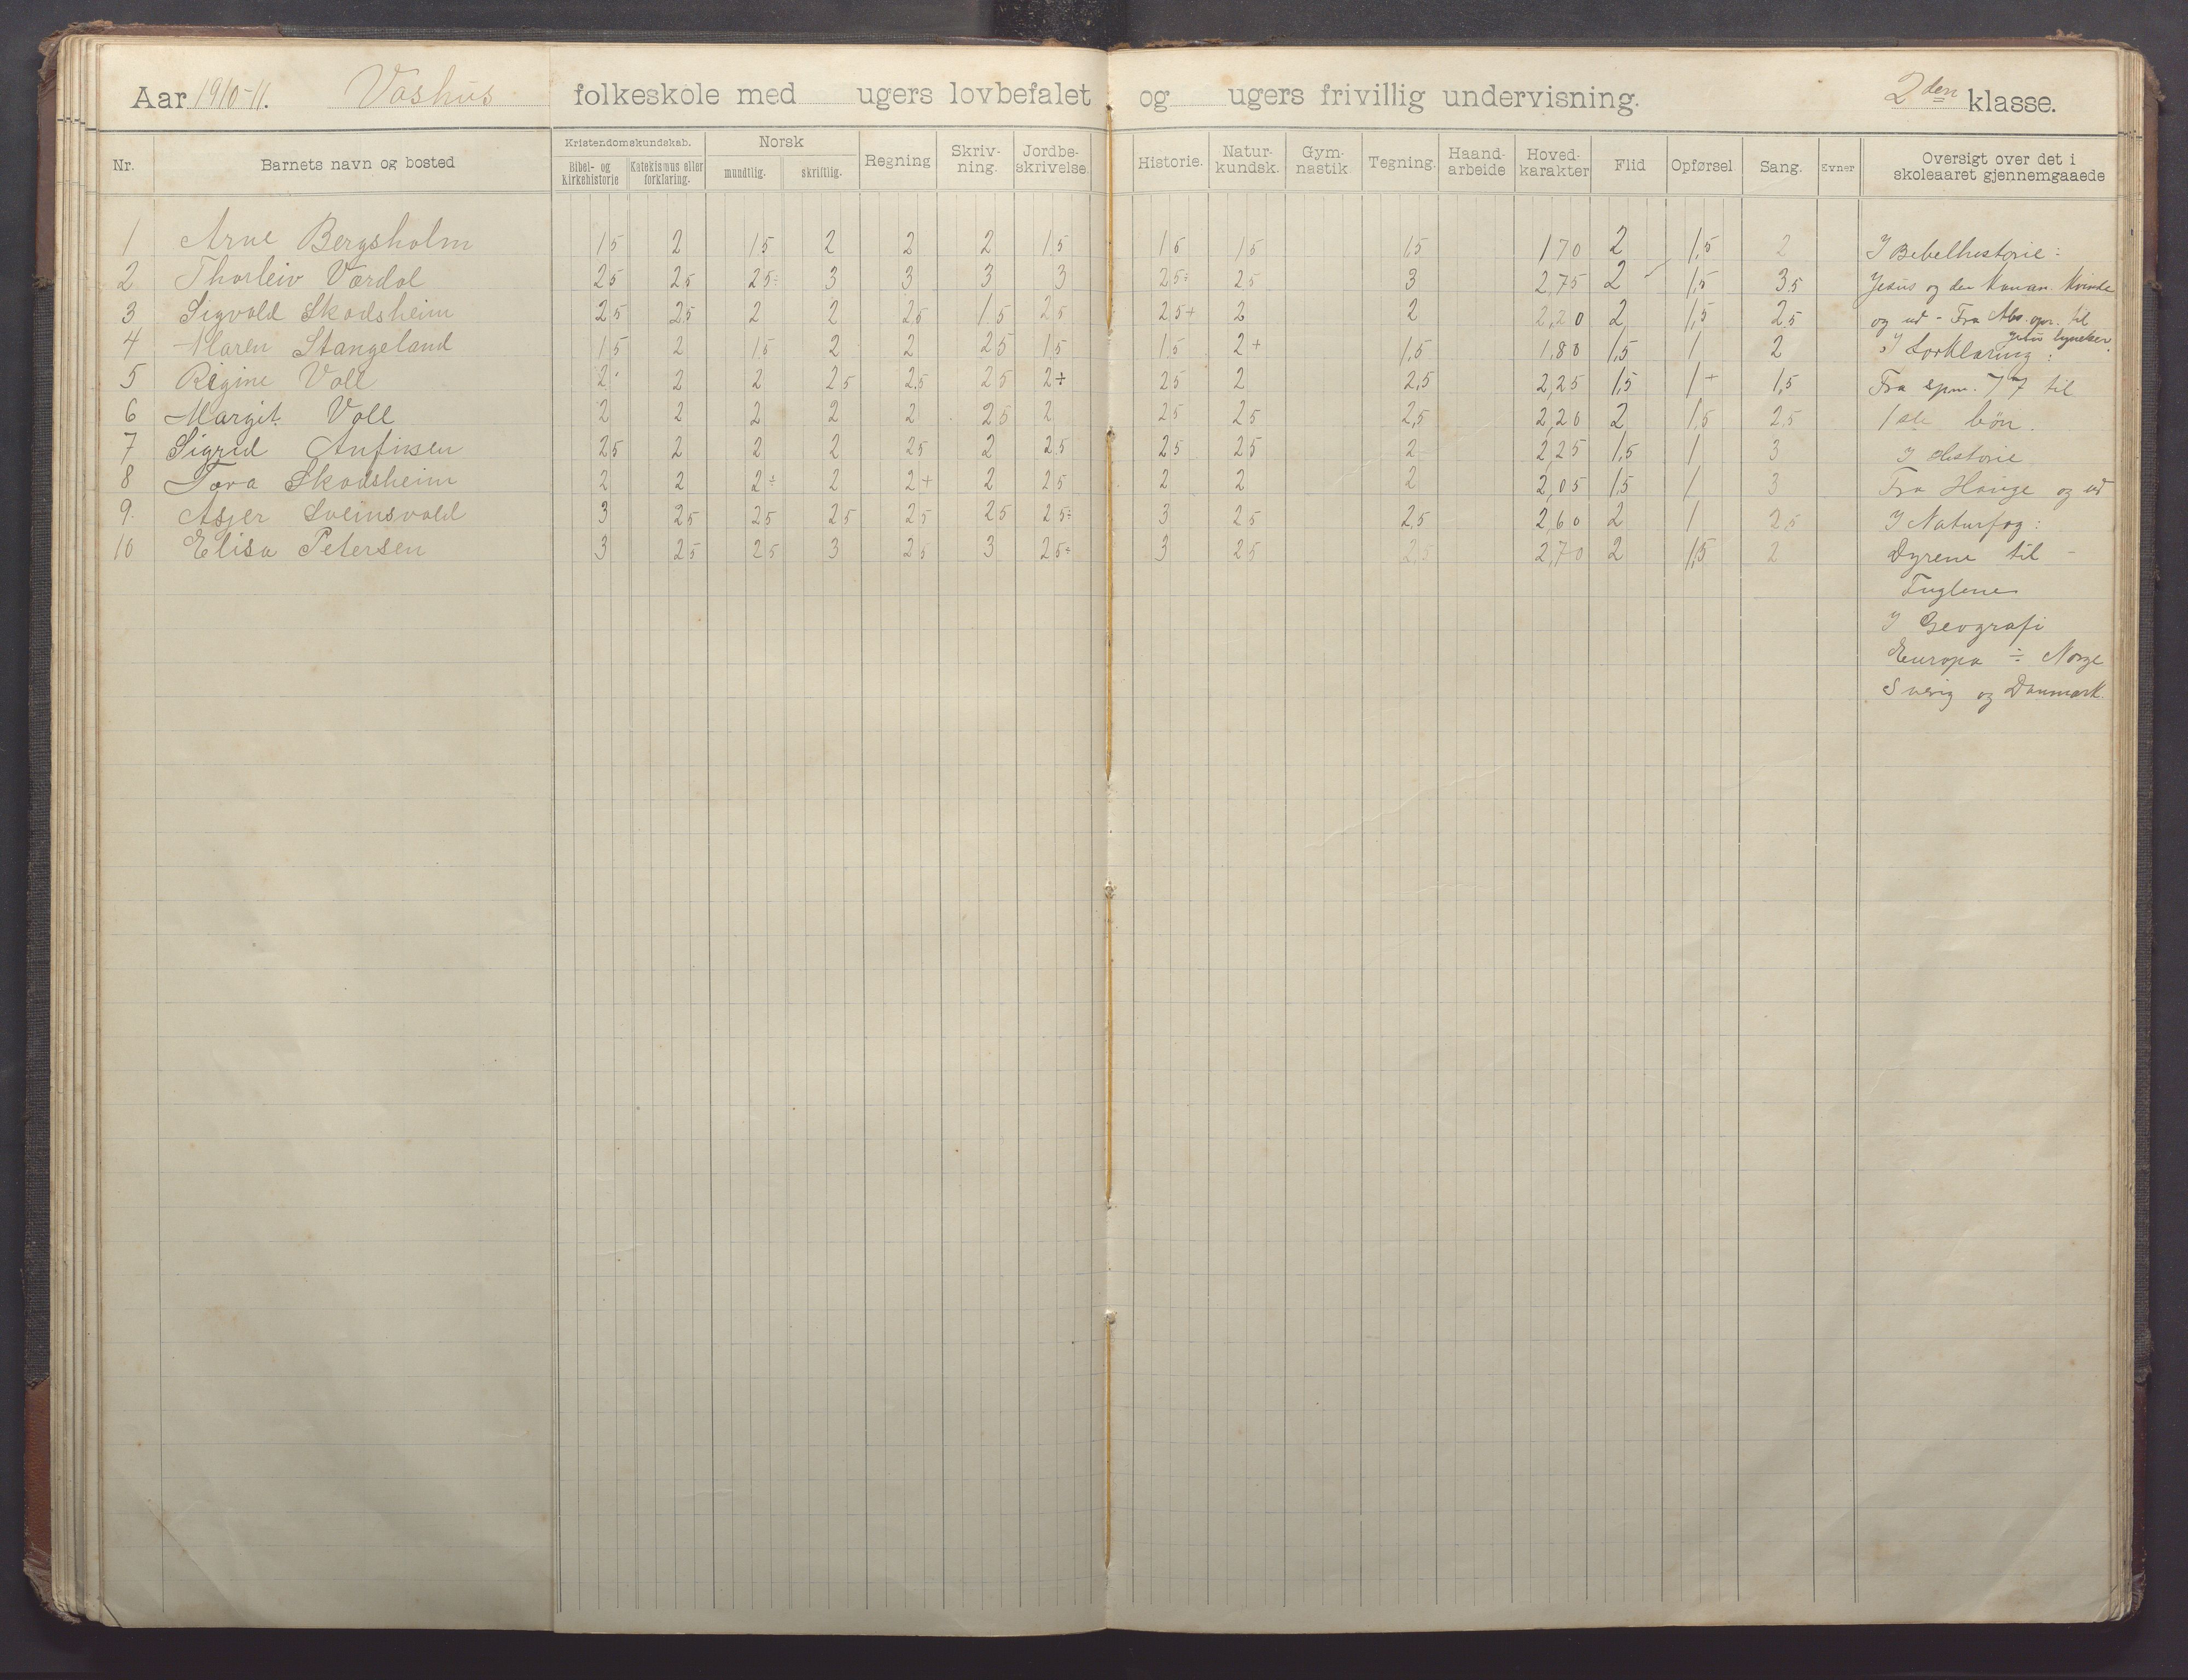 Aar 1910-11. Vashus folkeskole med ugers lovbefalet og ugers frivillig undervisning. 2den klasse.
Nr. Barnets navn og bosted Kristendomskundskab. Bibel- og Kirkehistorie Katekismus eller forklaring. Norsk mundtlig. skriftlig. Regning Skriv-ning. Jordbe-skrivelse. Historie. Natur-kundsk. Gym-nastik Tegning. Haand-arbeide Hoved-karakter Flid Opførsel. Sang. Evner Oversigt over det i skoleaaret gjennemgaaede
1 Arne Bergsholm 1 5 2 1 5 2 2 2 1 5 1 5 1 5 1,5 1 7 0 2 1,5 2 I Bibelhistorie:
2 Thorleiv Vardal 2 5 2 5 2 5÷ 3 3 3 3 2 5÷ 2 5 3 2,75 2 1,5 3,5 Jesus og den kanan. kvinde
3 Sigvald Skadsheim 2 5 2 5 2 2 2 5 1 5 2 5 2 5+ 2 2 2,20 2 1,5 2,5 og ud - Fra til
4 Maren Stangeland 1 5 2 1 5 2 2 2 5 1 5 1 5 2+ 1,5 1,80 1,5 1 2 I Forklaring:
5 Regine Voll 2 2 2 2 5 2 5 2 5 2÷ 2 5 2 2,5 2,25 1,5 1+ 1,5 Fra spm. 77 til
6 Margit Voll 2 2 2 2 2 2 5 2 2 5 2 5 2,5 2,20 2 1,5 2,5 1ste bøn.
7 Sigrid Anfinsen 2 5 2 2 2 2 5 2 2 5 2 5 2 5 2 2,25 1,5 1 3 I Historie
8 Tora Skadsheim 2 2 2÷ 2 2+ 2 2 5 2 2 2 2,05 1,5 1 3 Fra Hauge og ud
9. Asjer Sveinsvold 3 2 5 2 5 2 5 2 5 2 5 2 5÷ 3 2 5 2,5 2,60 2 1 2,5 I Naturfag:
10 Elisa Petersen 3 2 5 2 5 3 2 5 3 2 5÷ 3 2 5 2,5 2,70 2 1,5 2 Dyrene til -
Fuglene
I Geografi
Europa ÷ Norge
Sverig og Danmark.